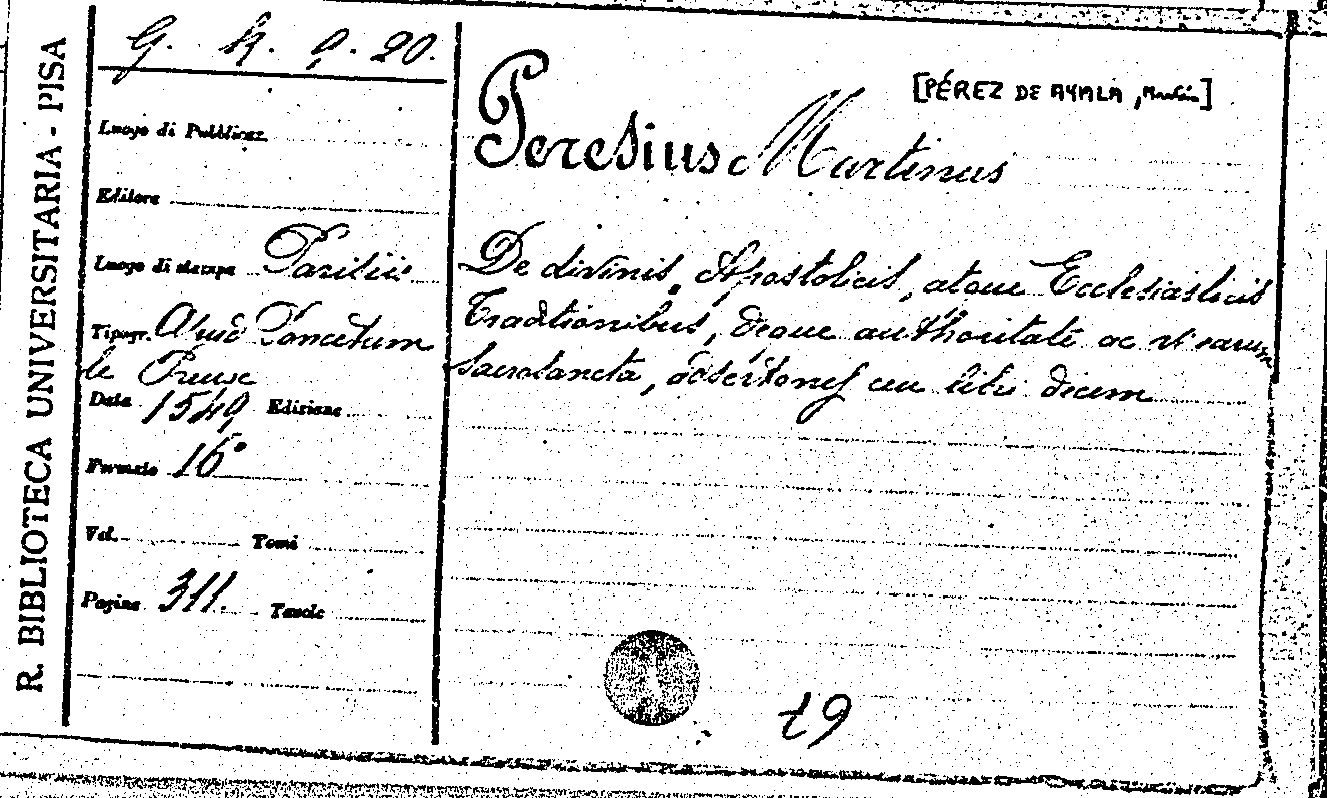 R. BIBLIOTECA UNIVERSITARIA - PISA
G. K. 9. 20.
Luogo di Pubblicaz.
Editore
Luogo di stampa Parisiis
Tipogr. Apud Poncetum
le Preux
Data 1549 Edizione
Formato 16°
Vol. Tomi
Pagine 311. Tavole
[PÉREZ DE AYALA, Martín]
Peresius Martinus
De divinis, Apostolicis, atque Ecclesiasticis
Traditionibus, deque authoritate ac vi earum
sacrosancta, adsertiones ceu libri decem
t9